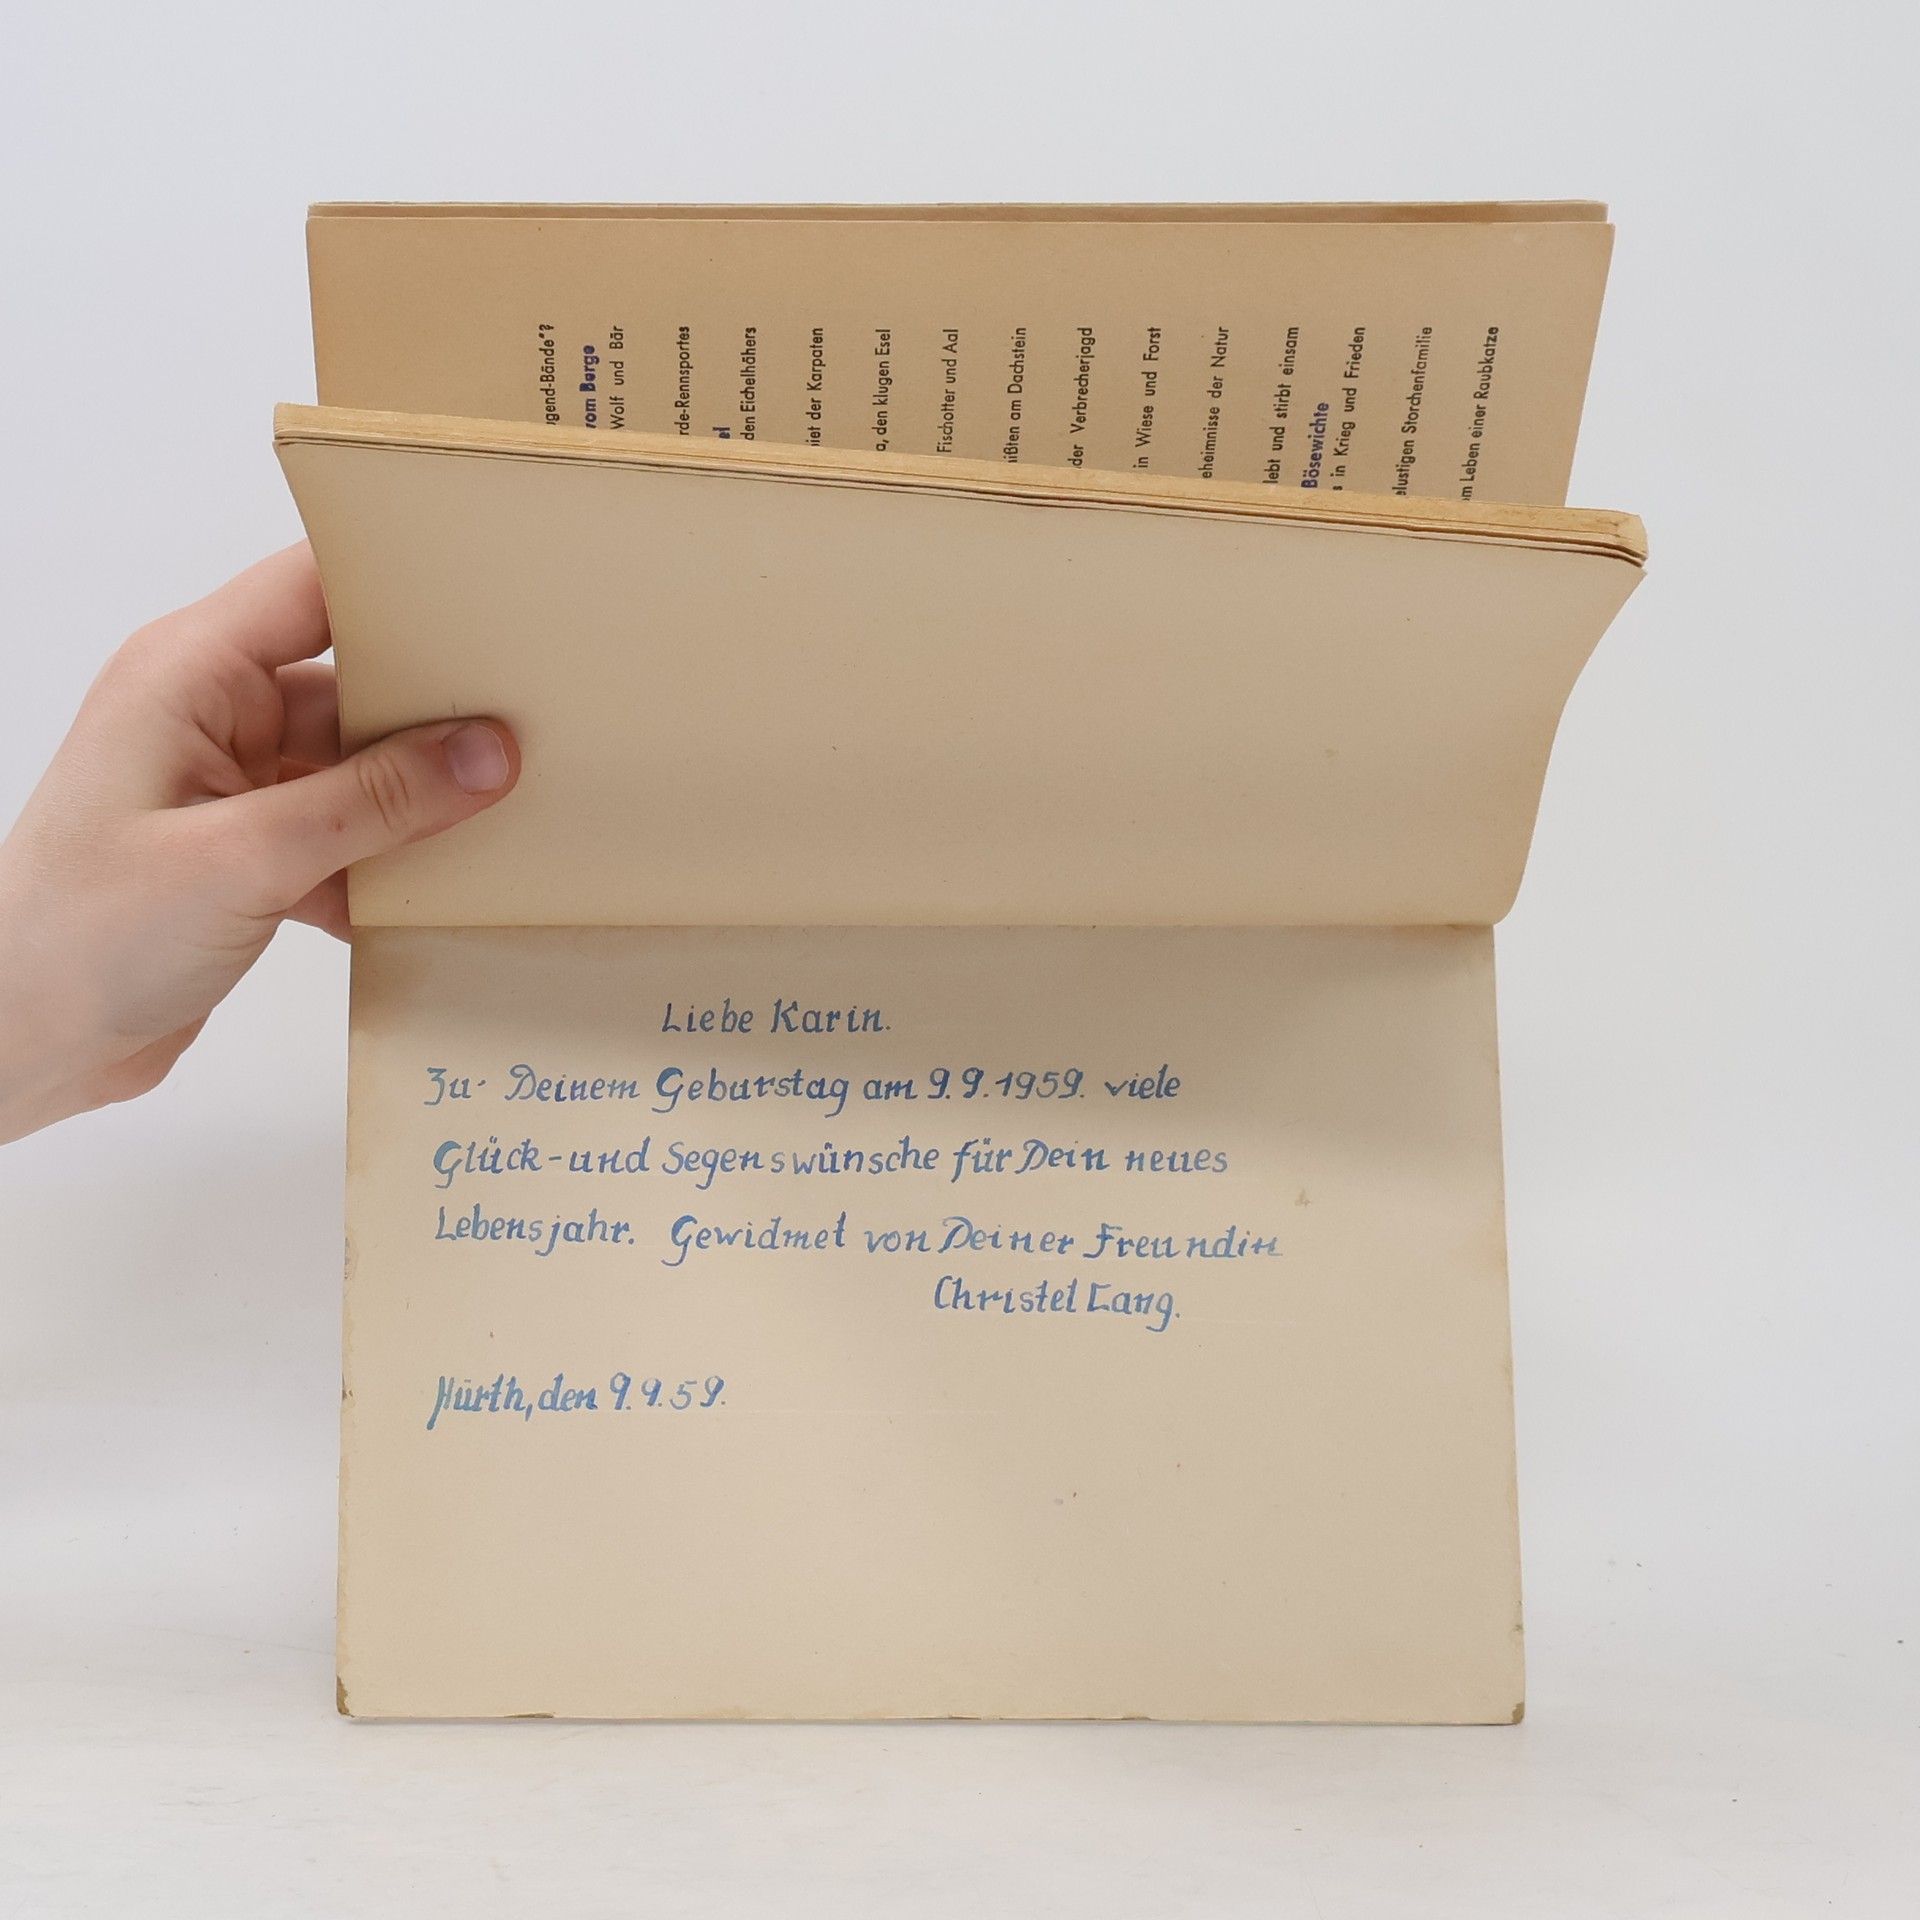 ugend-Bände"?
vom Berge
Wolf und Bär
rde-Rennsportes
el
den Eichelhähers
iet der Karpaten
a, den klugen Esel
Fischotter und Aal
ißten am Dachstein
der Verbrecherjagd
in Wiese und Forst
eheimnisse der Natur
lebt und stirbt einsam
Bösewichte
s in Krieg und Frieden
elustigen Storchenfamilie
m Leben einer Raubkatze
Liebe Karin.
Zu Deinem Geburstag am 9.9.1959. viele
Glück-und Segenswünsche für Dein neues
Lebensjahr. Gewidmet von Deiner Freundin
Christel Lang.
Hürth, den 9.9.59.